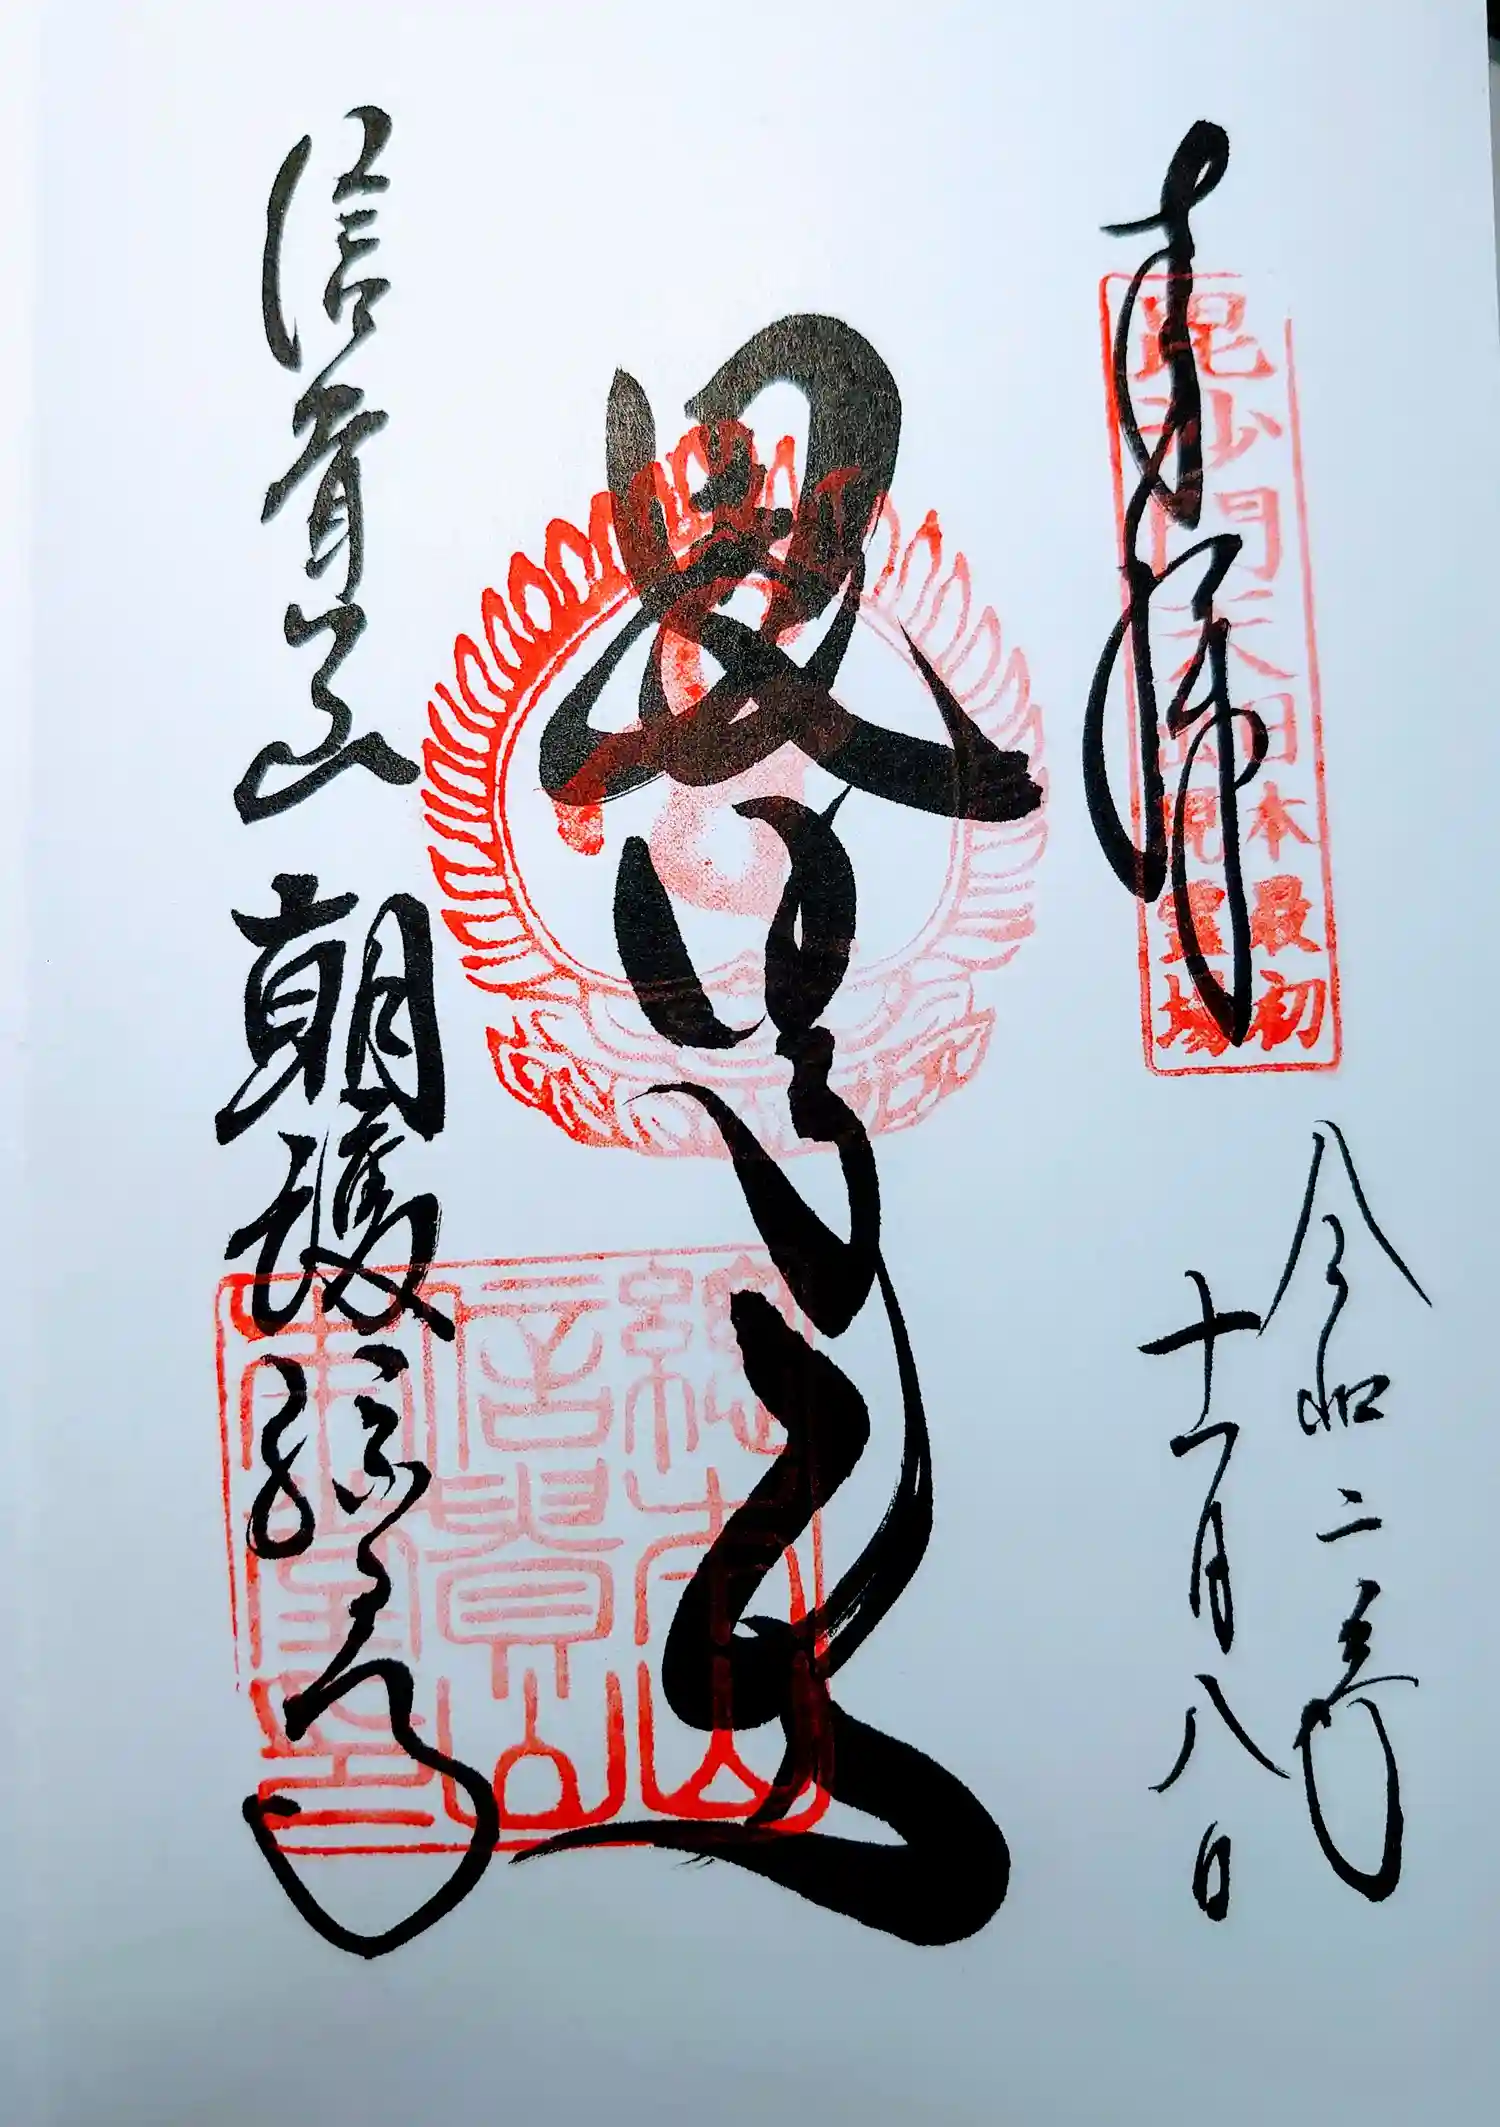 奉拝
毘沙門天
日本最初
出現霊場
令和二年
十一月八日
總本山
信貴山
本堂印
信貴山
朝護孫子寺